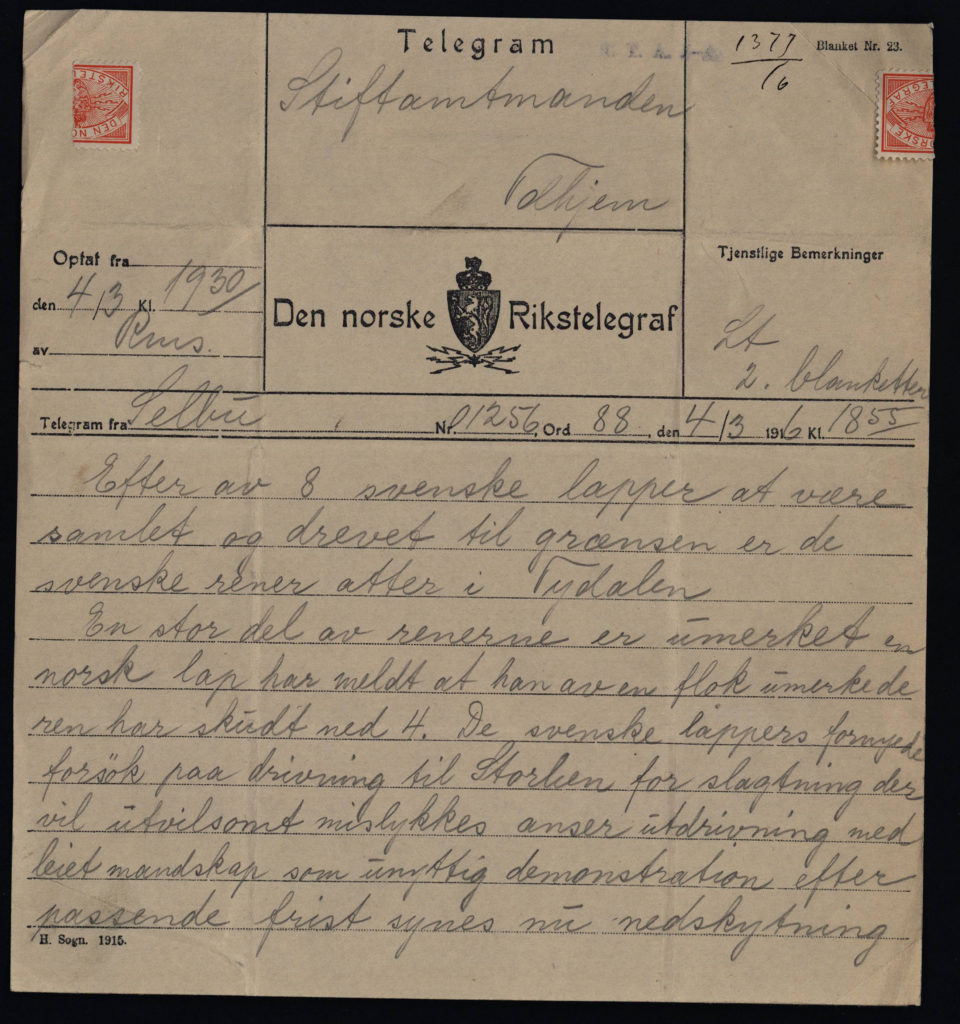 Telegram
1377
/6
Blanket Nr. 23.
Stiftamtmanden
Tdhjem
Optat fra
den 4/3 Kl. 1930
av Rms.
Den norske Rikstelegraf
Tjenstlige Bemerkninger
Lt
2. blanketter
Telegram fra Selbu Nr. 01256, Ord 88, den 4/3 1916 Kl. 1855
Efter av 8 svenske lapper at være
samlet og drevet til grænsen er de
svenske rener atter i Tydalen
En stor del av renerne er umerket en
norsk lap har meldt at han av en flok umerkede
ren har skudt ned 4. De svenske lappers fornyede
forsök paa drivning til Storlien for slagtning der
vil utvilsomt mislykkes anser utdrivning med
leiet mandskap som unyttig demonstration efter
passende frist synes nu nedskytning
H. Sogn. 1915.